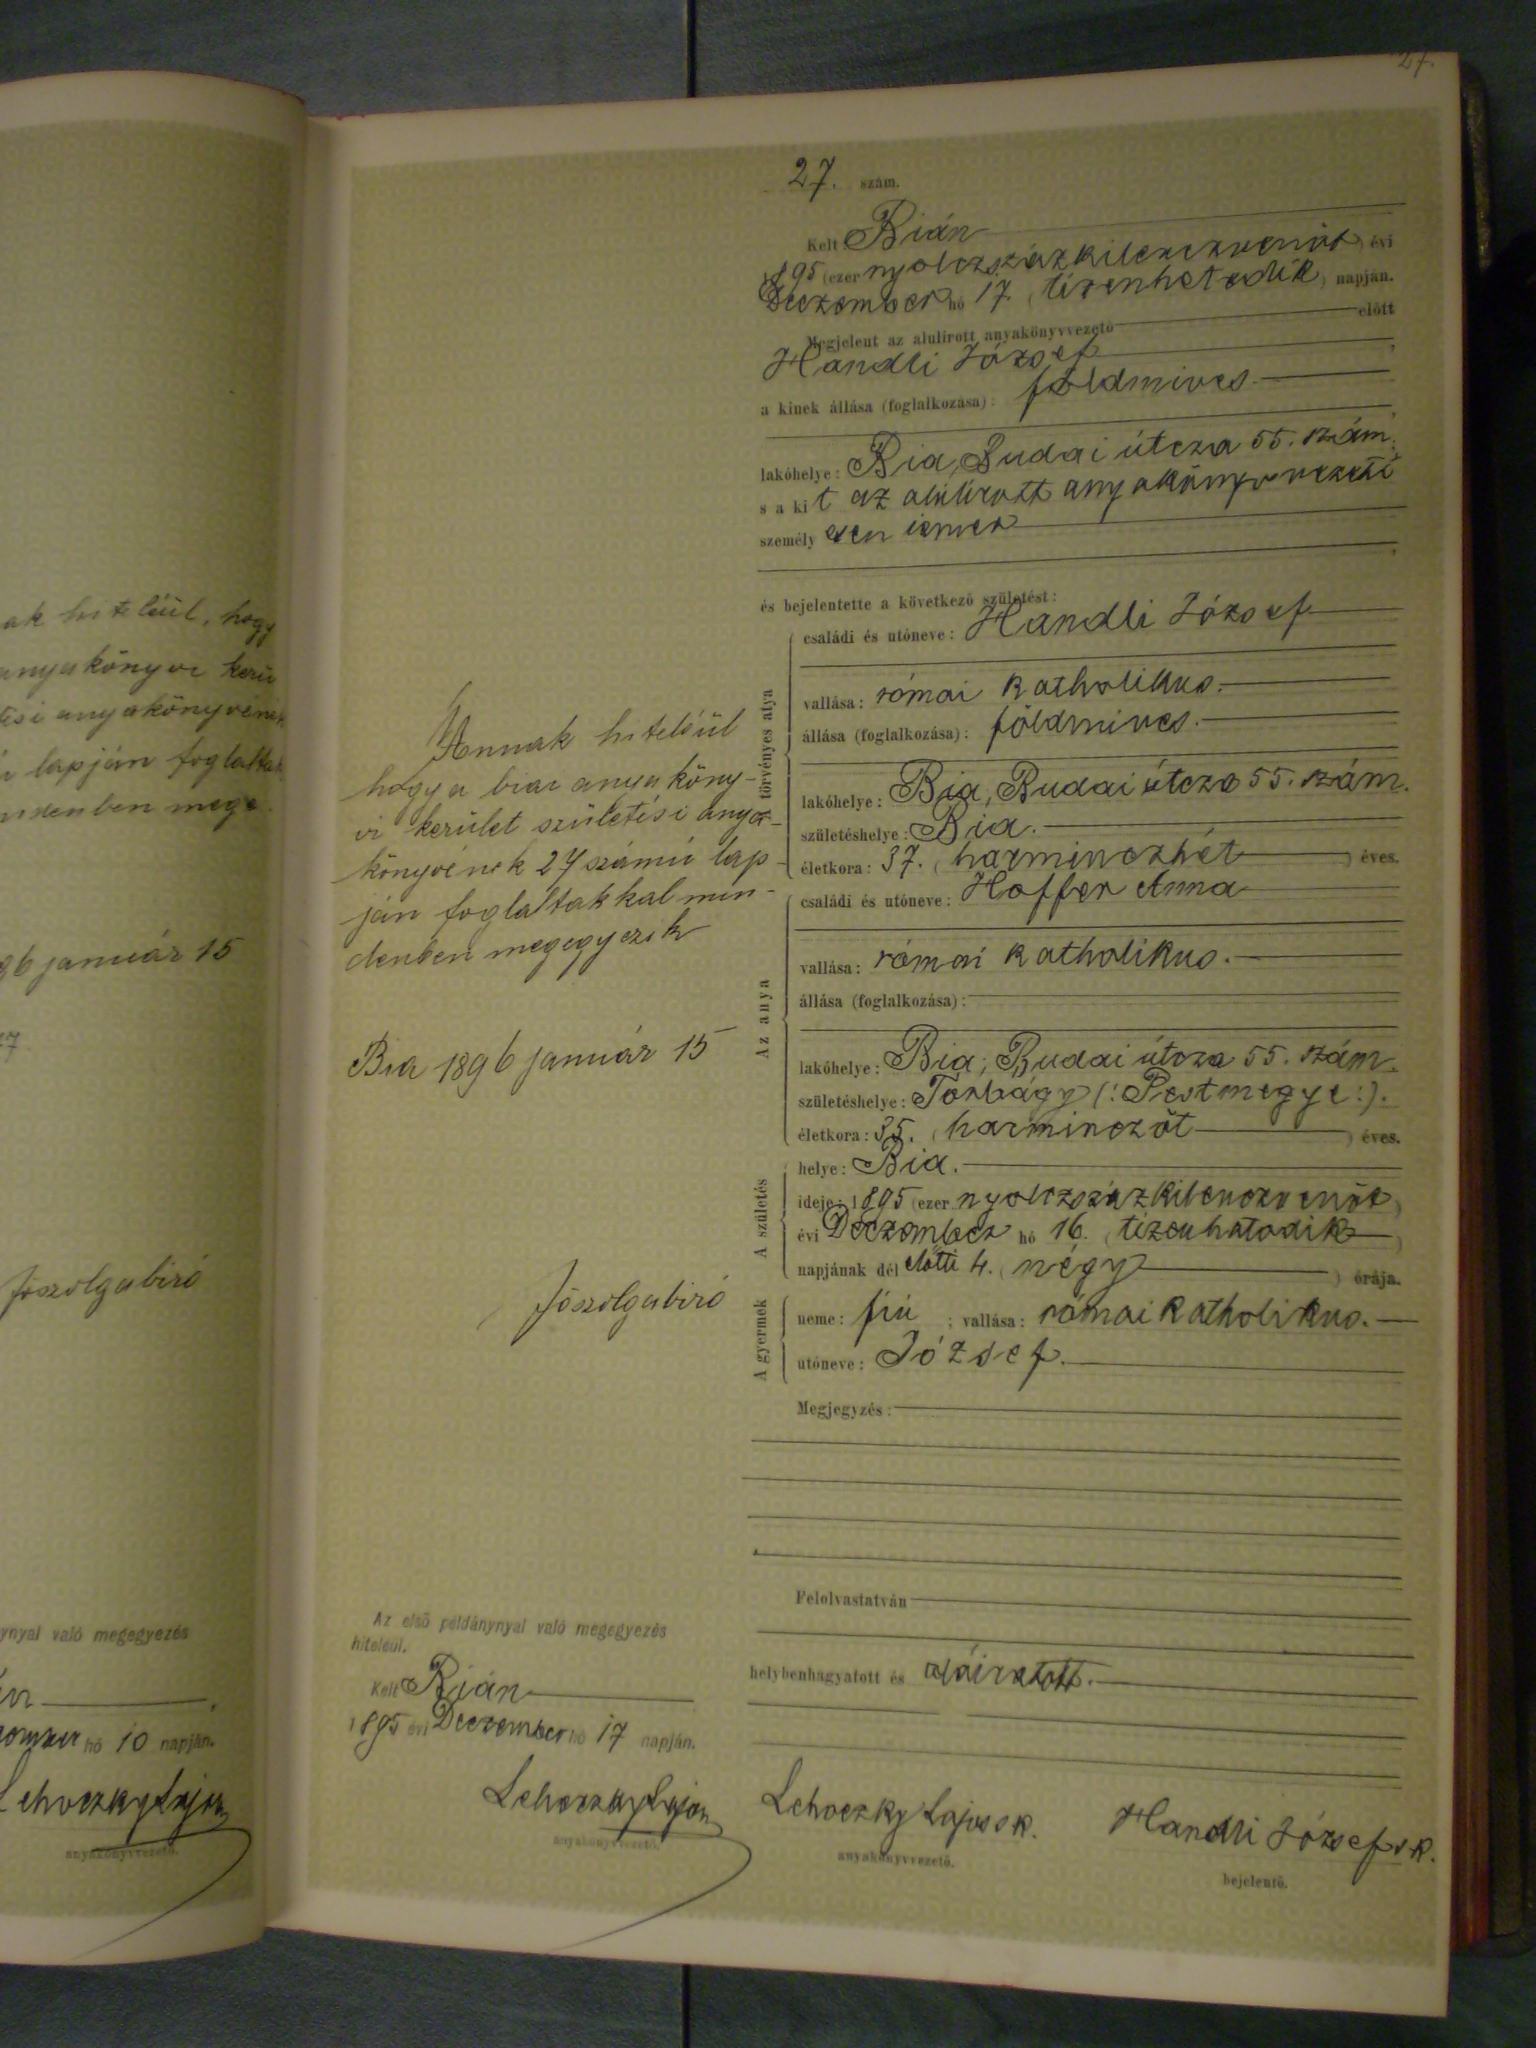 27.
27. szám.
Kelt Bián
1895 (ezernyolczszázkilenczvenöt) évi
Deczember hó 17. (tizenhetedik) napján.
Megjelent az alulirott anyakönyvvezető előtt
Handli József
a kinek állása (foglalkozása): földmives.
lakóhelye: Bia, Budai útcza 55. szám.
s a kit az alúlirott anyakönyvvezető
személyesen ismer
és bejelentette a következő születést:
A törvényes atya
családi és utóneve: Handli József
vallása: római katholikus.
állása (foglalkozása): földmives.
lakóhelye: Bia, Budai útcza 55. szám.
születéshelye: Bia.
életkora: 37. (harminczhét) éves.
Az anya
családi és utóneve: Hoffer Anna
vallása: római katholikus.
állása (foglalkozása):
lakóhelye: Bia, Budai útcza 55. szám.
születéshelye: Torbágy (: Pestmegye :).
életkora: 35. (harminczöt) éves.
A születés
helye: Bia.
ideje: 1895 (ezernyolczszázkilenczvenöt)
évi Deczember hó 16. (tizenhatodik)
napjának délelőtti 4. (négy) órája.
A gyermek
neme: fiú; vallása: római katholikus.
utóneve: József.
Megjegyzés:
Felolvastatván
helybenhagyatott és aláiratott.
Lehoczky Lajos sk.
anyakönyvvezető.
Handli József sk.
bejelentő.
Annak hiteléül
hogy a biai anyaköny-
vi kerület születési anya-
könyvének 27 számú lap-
ján foglaltakkal min-
denben megegyezik
Bia 1896 január 15
főszolgabiró
Az első példánynyal való megegyezés
hiteléül.
Kelt Bián
1895 évi Deczember hó 17 napján.
Lehoczky Lajos
anyakönyvvezető.
ak hiteléül, hogy
anyakönyvi kerü
tési anyakönyvének
lapján foglaltak
ndenben mege
96 január 15
főszolgabiró
ynyal való megegyezés
hó 10 napján.
Lehoczky Lajos
anyakönyvvezető.